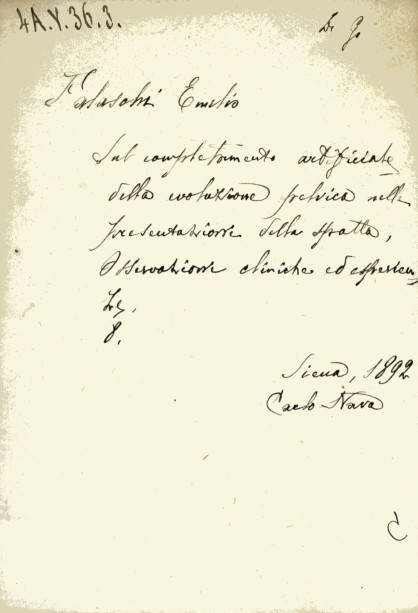 4A.Y.36.3.
Falaschi Emilio
Sul completamento artificiale
della evoluzione pelvica nella
presentazione della spalla,
Osservazioni cliniche ed esperien
ze,
8.
Siena, 1892
Carlo Nava
C